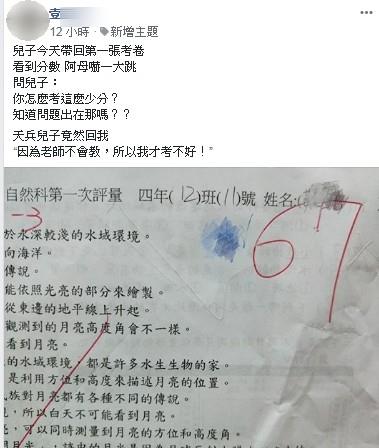 壹
12 小時 · 新增主題
兒子今天帶回第一張考卷
看到分數 阿母嚇一大跳
問兒子：
你怎麼考這麼少分？
知道問題出在那嗎？？
天兵兒子竟然回我
“因為老師不會教，所以我才考不好！”
自然科第一次評量 四年(12)班(11)號 姓名:
-3
67
於水深較淺的水域環境。
向海洋。
傳說。
能依照光亮的部分來繪製。
從東邊的地平線上升起。
觀測到的月亮高度角會不一樣。
看到月亮。
的水域環境，都是許多水生生物的家。
是利用方位和高度來描述月亮的位置。
族對月亮都有各種不同的傳說。
，所以白天不可能看到月亮。
，可以同時測量到月亮的方位和高度角。